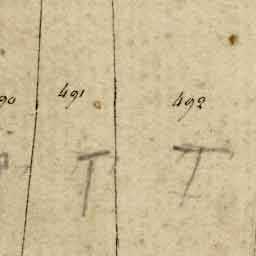 90
491
492
T
T